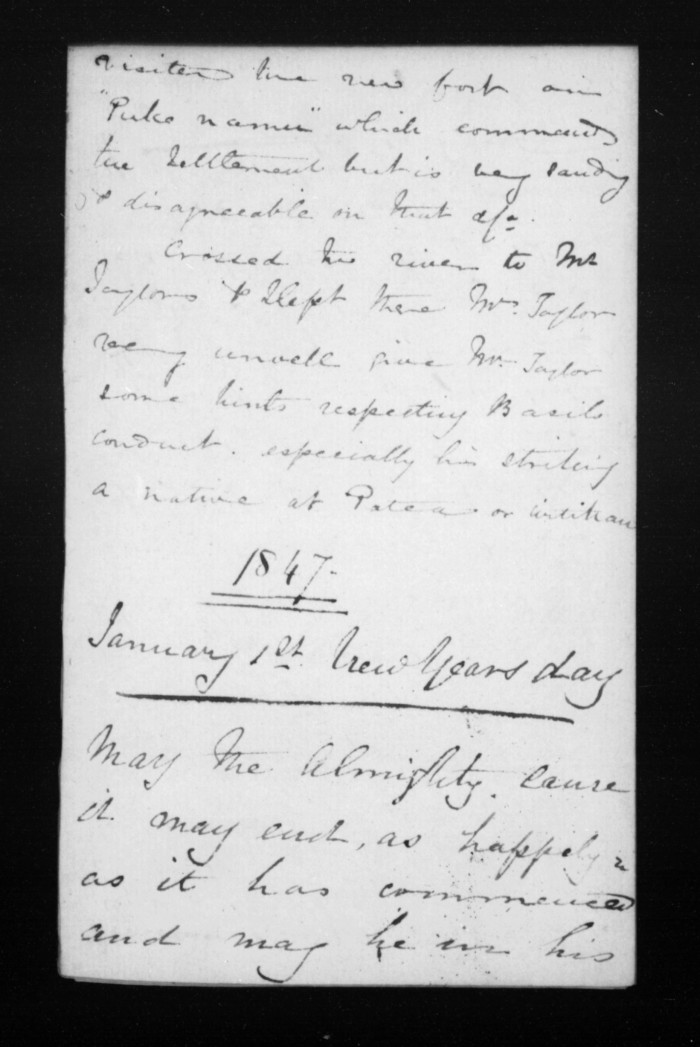 visited the new fort on
"Puke namu" which commands
the settlement but is very sandy
& disagreeable on that a/c.
Crossed the river to Mr
Taylors & slept there Mrs. Taylor
being unwell give Mr. Taylor
some hints respecting Basils
conduct. especially his striking
a native at Patea or
1847.
January 1st. New Years day
May the Almighty. cause
it may end, as happely
as it has commenced
and may he in his